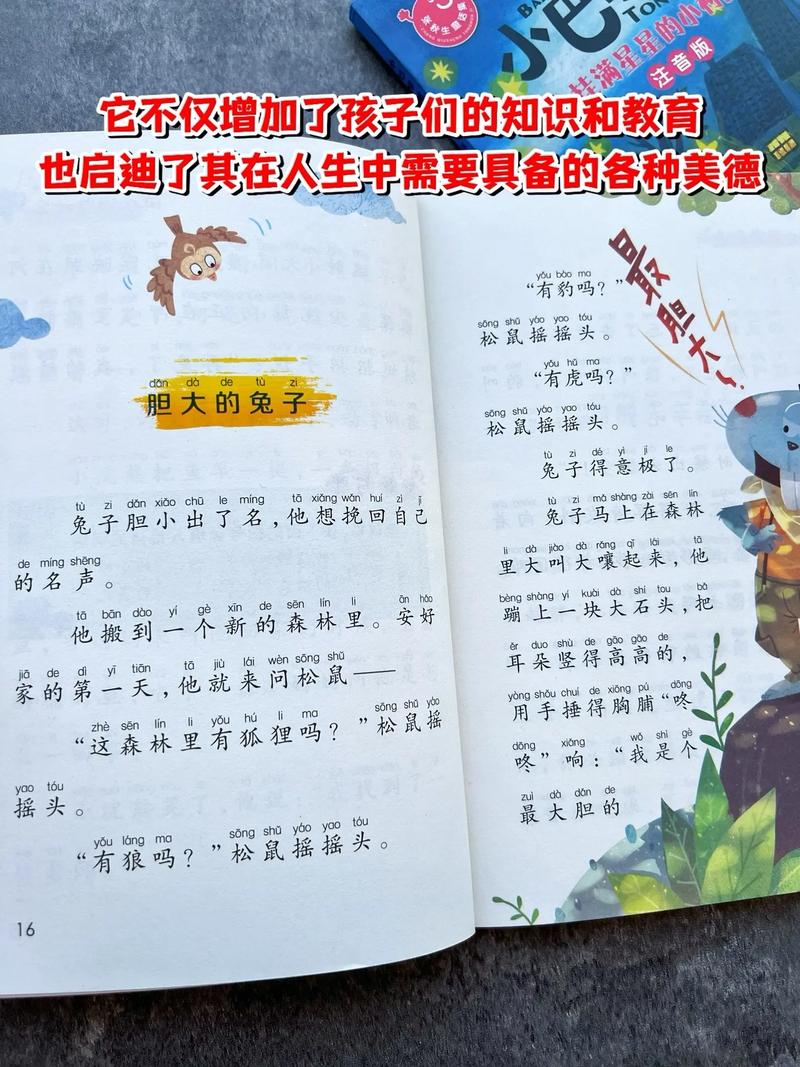 张秋生童话
小巴
TON
挂满星星的小
注音版
它不仅增加了孩子们的知识和教育
也启迪了其在人生中需要具备的各种美德
dǎn dà de tù zi
胆大的兔子
tù zi dǎn xiǎo chū le míng tā xiǎng wǎn huí zì jǐ
兔子胆小出了名，他想挽回自己
de míng shēng
的名声。
tā bān dào yí gè xīn de sēn lín li ān hǎo
他搬到一个新的森林里。安好
jiā de dì yī tiān tā jiù lái wèn sōng shǔ
家的第一天，他就来问松鼠——
zhè sēn lín li yǒu hú li ma sōng shǔ yáo
“这森林里有狐狸吗？”松鼠摇
yao tóu
摇头。
yǒu láng ma sōng shǔ yáo yao tóu
“有狼吗？”松鼠摇摇头。
16
yǒu bào ma
“有豹吗？”
sōng shǔ yáo yao tóu
松鼠摇摇头。
yǒu hǔ ma
“有虎吗？”
sōng shǔ yáo yao tóu
松鼠摇摇头。
tù zi dé yì jí le
兔子得意极了。
tù zi mǎ shàng zài sēn lín
兔子马上在森林
li dà jiào dà rǎng qǐ lái tā
里大叫大嚷起来，他
bèng shàng yí kuài dà shí tou bǎ
蹦上一块大石头，把
ěr duo shù de gāo gāo de
耳朵竖得高高的，
yòng shǒu chuí de xiōng pú dōng
用手捶得胸脯“咚
dōng xiǎng wǒ shì gè
咚”响：“我是个
zuì dà dǎn de
最大胆的
最胆大